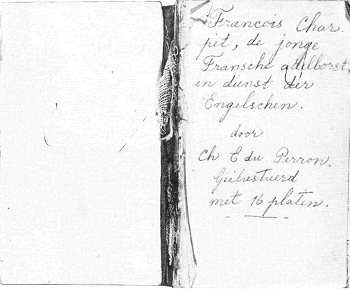 Francois Char
pit, de jonge
Fransche adelborst,
in dienst der
Engelschen.
door
Ch E du Perron.
Geïllustreerd
met 16 platen.